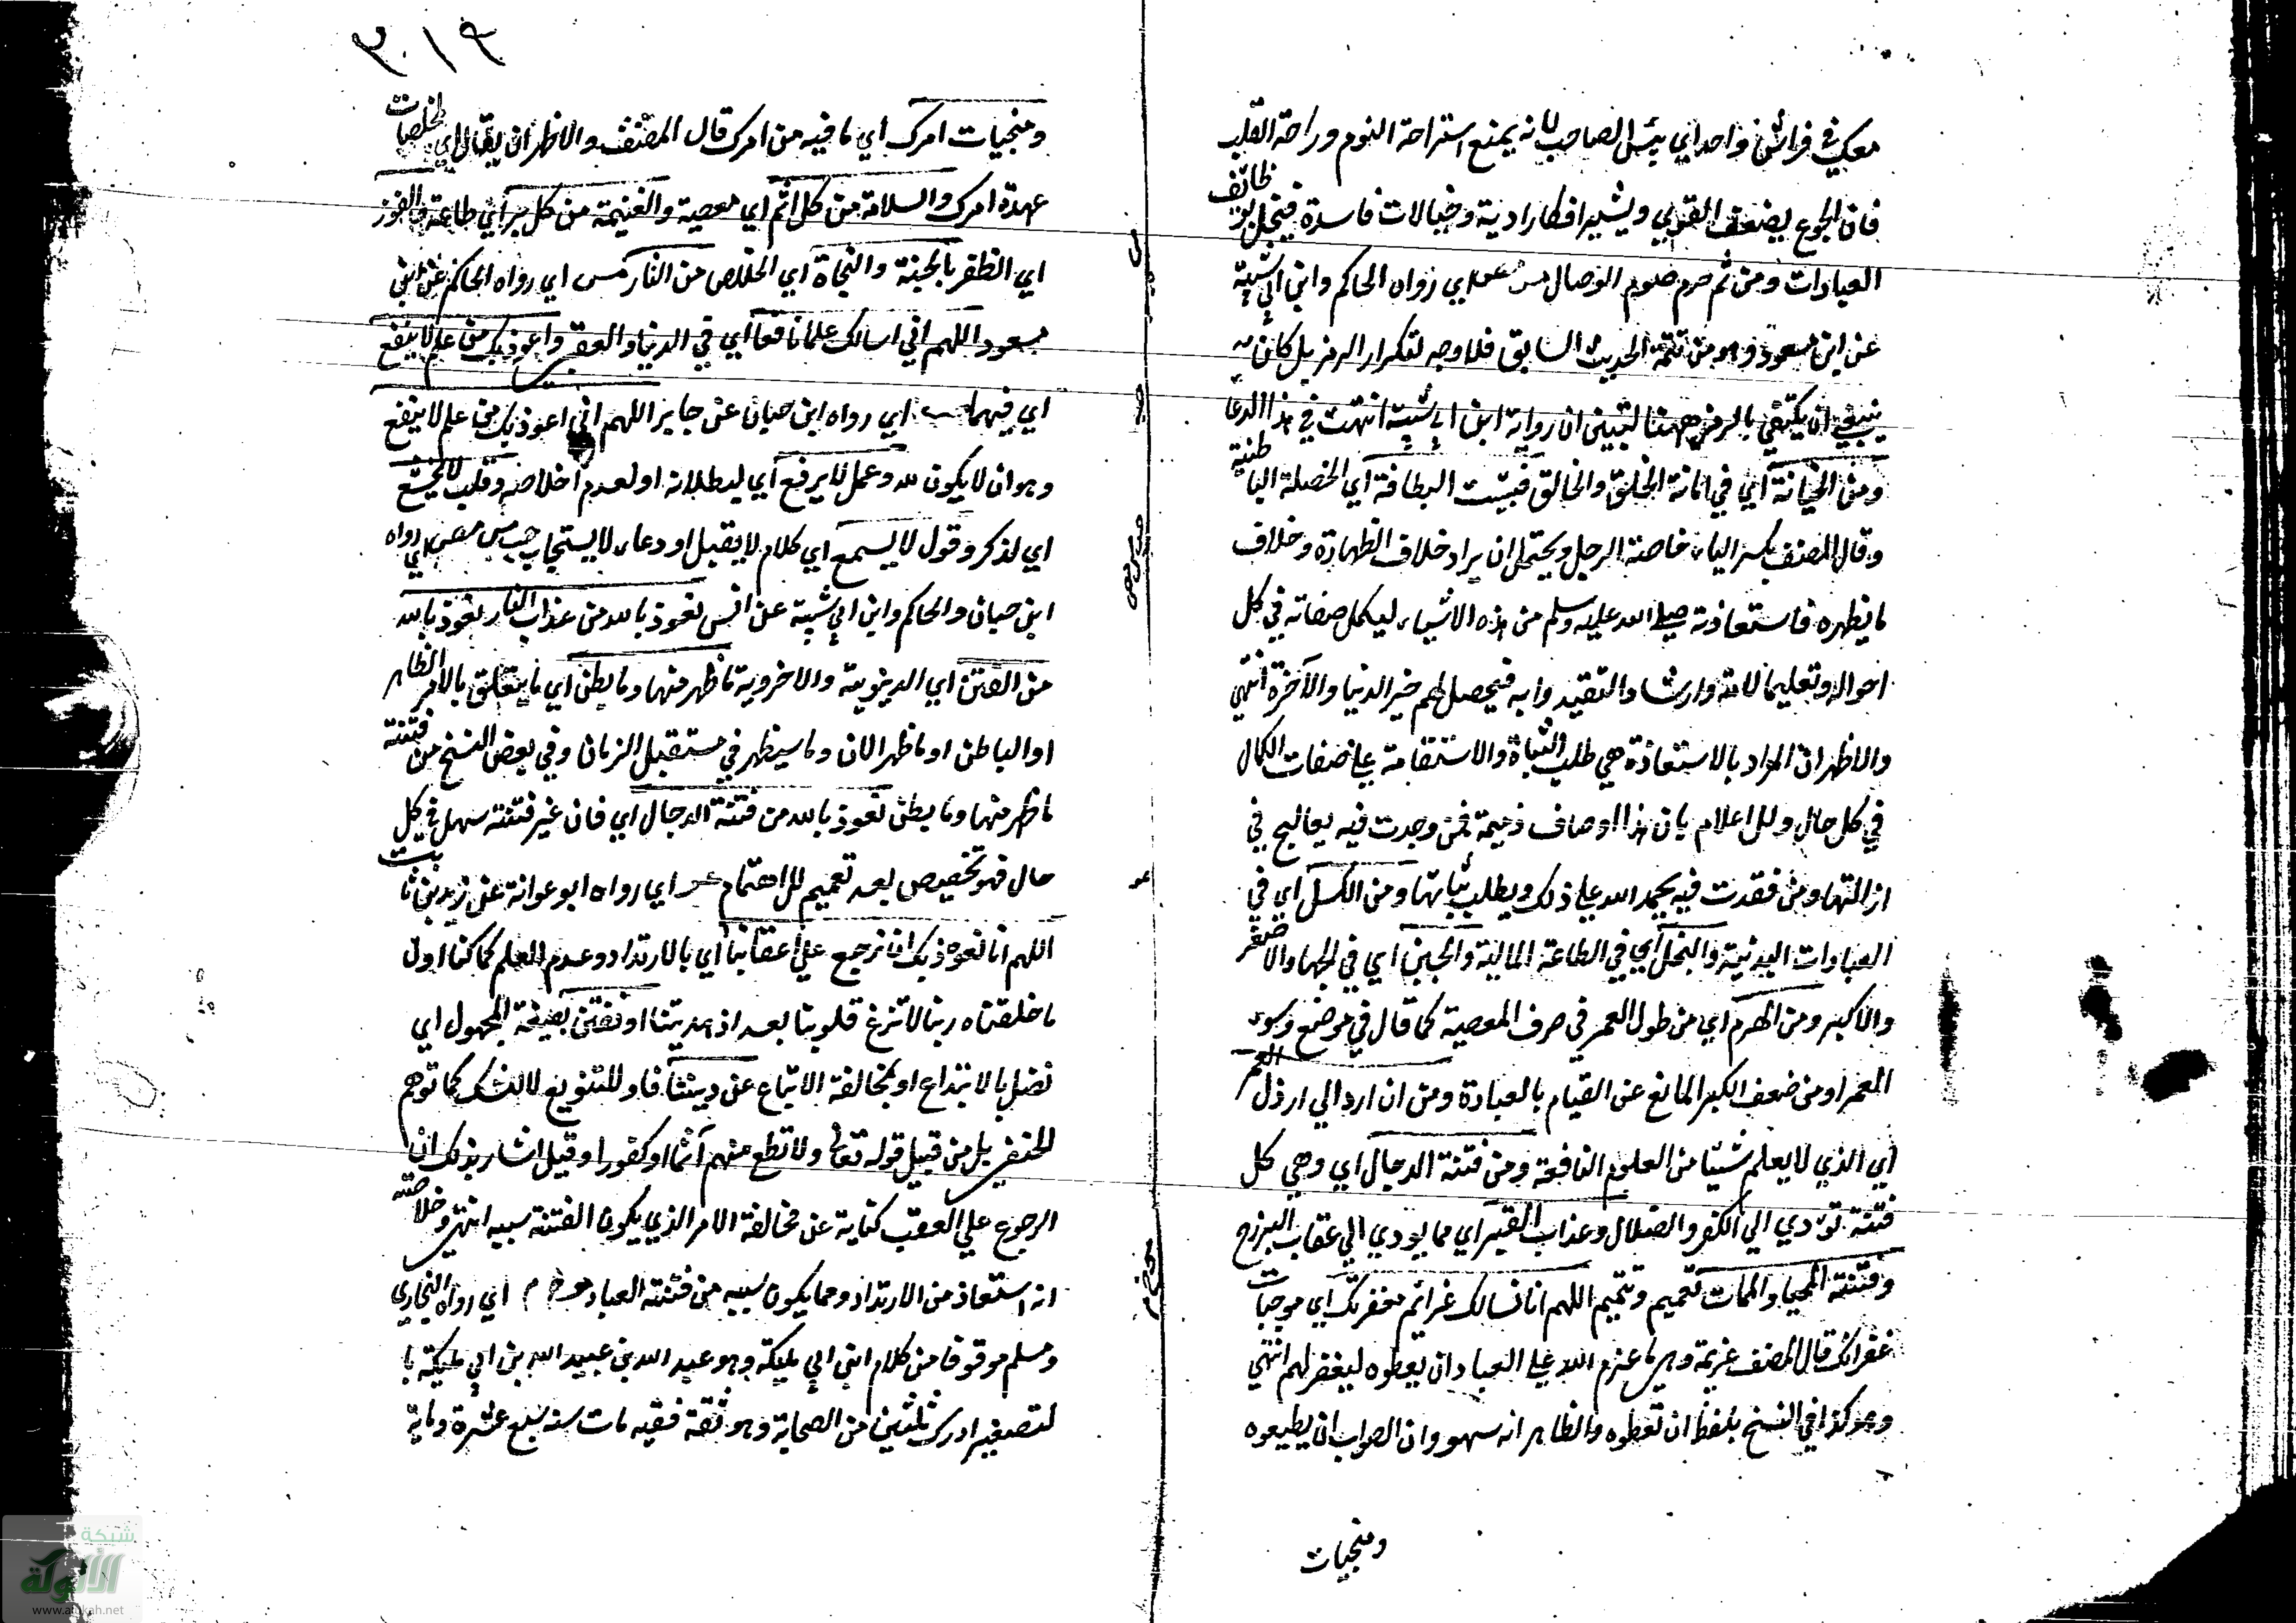 معك في فراش واحد اي بئس الصاحب لانه يمنع استراحة النوم وراحة القلب
فان الجوع يضعف القوي ويشير افكارا ردية وخيالات فاسدة فيخل بوظائف
العبادات ومن ثم حرم صوم الوصال مس مص اي رواه الحاكم وابن ابي شيبة
عن ابن مسعود وهو من تتمة الحديث السابق فلا وجه لتكرار الرمز بل كان
ينبغي ان يكتفي بالرمز ههنا لتبيين ان رواية ابن ابي شيبة انتهت في هذا الدعا
ومن الخيانة اي في امانة الخلق والخالق فبئست البطانة اي الخصلة الباطنية
وقال المصنف بكسر الباء خاصة الرجل ويحتمل ان يراد خلاف الظهارة وخلاف
ما يظهره فاستعاذته صلي الله عليه وسلم من هذه الاشياء ليكمل صفاته في كل
احواله وتعليما لامته وارشادا لتقيدوا به فيحصل لهم خير الدنيا والآخرة انتهي
والاظهر ان المراد بالاستعاذة هي طلب الثبات والاستقامة علي صفات الكمال
في كل حال وللاعلام بان هذا اوصاف ذميمة فمن وجدت فيه يعالج في
ازالتها ومن فقدت فيه يحمد الله علي ذلك ويطلب ثباتها ومن الكسل اي في
العبادات البدنية والبخل اي في الطاعة المالية والجبن اي في الجهاد الاصغر
والاكبر ومن الهرم اي من طول العمر في صرف المعصية كما قال في موضع وسوء
العمر او من ضعف الكبر المانع عن القيام بالعبادة ومن ان ارد الي ارذل العمر
اي الذي لا يعلم شيئا من العلوم النافعة ومن فتنة الدجال اي وهي كل
فتنة تؤدي الي الكفر والضلال وعذاب القبر اي مما يؤدي الي عقاب البرزخ
وفتنة المحيا والممات تعميم وتتميم اللهم انا نسالك عزائم مغفرتك اي موجبات
غفرانك قال المصنف عزيمة وهي ما عزم الله علي العباد ان يعطوه ليغفر لهم انتهي
وهو كذا في النسخ بلفظ ان تعطوه والظاهر انه سهو وان الصواب ان يطيعوه
ومنجيات
٣٠١٩
ومنجيات امرك اي ما فيه من امرك قال المصنف والاظهر ان يقال اي مخلصات
عهدة امرك والسلامة من كل اثم اي معصية والغنيمة من كل بر اي طاعة والفوز
اي الظفر بالجنة والنجاة اي الخلاص من النار مس اي رواه الحاكم عن ابن
مسعود اللهم اني اسالك علما نافعا اي في الدنيا والعقبي واعوذ بك من علم لا ينفع
اي فيهما حب اي رواه ابن حبان عن جابر اللهم اني اعوذ بك من علم لا ينفع
وهو ان لا يكون لله وعمل لا يرفع اي لبطلانه او لعدم اخلاصه وقلب لا يخشع
اي لذكر وقول لا يسمع اي كلام لا يقبل او دعاء لا يستجاب حب مس مص اي رواه
ابن حبان والحاكم وابن ابي شيبة عن انس نعوذ بالله من عذاب النار نعوذ بالله
من الفتن اي الدينوية والاخروية ما ظهر منها وما بطن اي ما يتعلق بالامر الظاهر
او الباطن او ما ظهر الان وما سيظهر في مستقبل الزمان وفي بعض النسخ من فتنة
ما ظهر منها وما بطن نعوذ بالله من فتنة الدجال اي فان غير فتنته سهل في كل
حال فهو تخصيص بعد تعميم للاهتمام عو اي رواه ابو عوانة عن زيد بن ثابت
اللهم انا نعوذ بك ان نرجع علي اعقابنا اي بالارتداد وعدم العلم كما كنا اول
ما خلقتاه ربنا لا تزغ قلوبنا بعد اذ هديتنا او نفتن بصيغة المجهول اي
نضل بالابتداع او بمخالفة الاتباع عن ديننا فاو للتنويع لا للشك كما توهم
الحنفي بل من قبيل قوله تعالي ولا تطع منهم آثما او كفورا وقيل اشار بذلك ان
الرجوع علي العقب كناية عن مخالفة الامر الذي يكون الفتنة سببه انتهي وخلاصته
انه استعاذ من الارتداد ومما يكون سببه من فتنة العباد موخ م اي رواه البخاري
ومسلم موقوفا من كلام ابن ابي مليكة وهو عبد الله بن عبيد الله بن ابي مليكة با
لتصغير ادرك ثلثين من الصحابة وهو ثقة فقيه مات سنه سبع عشرة وماية